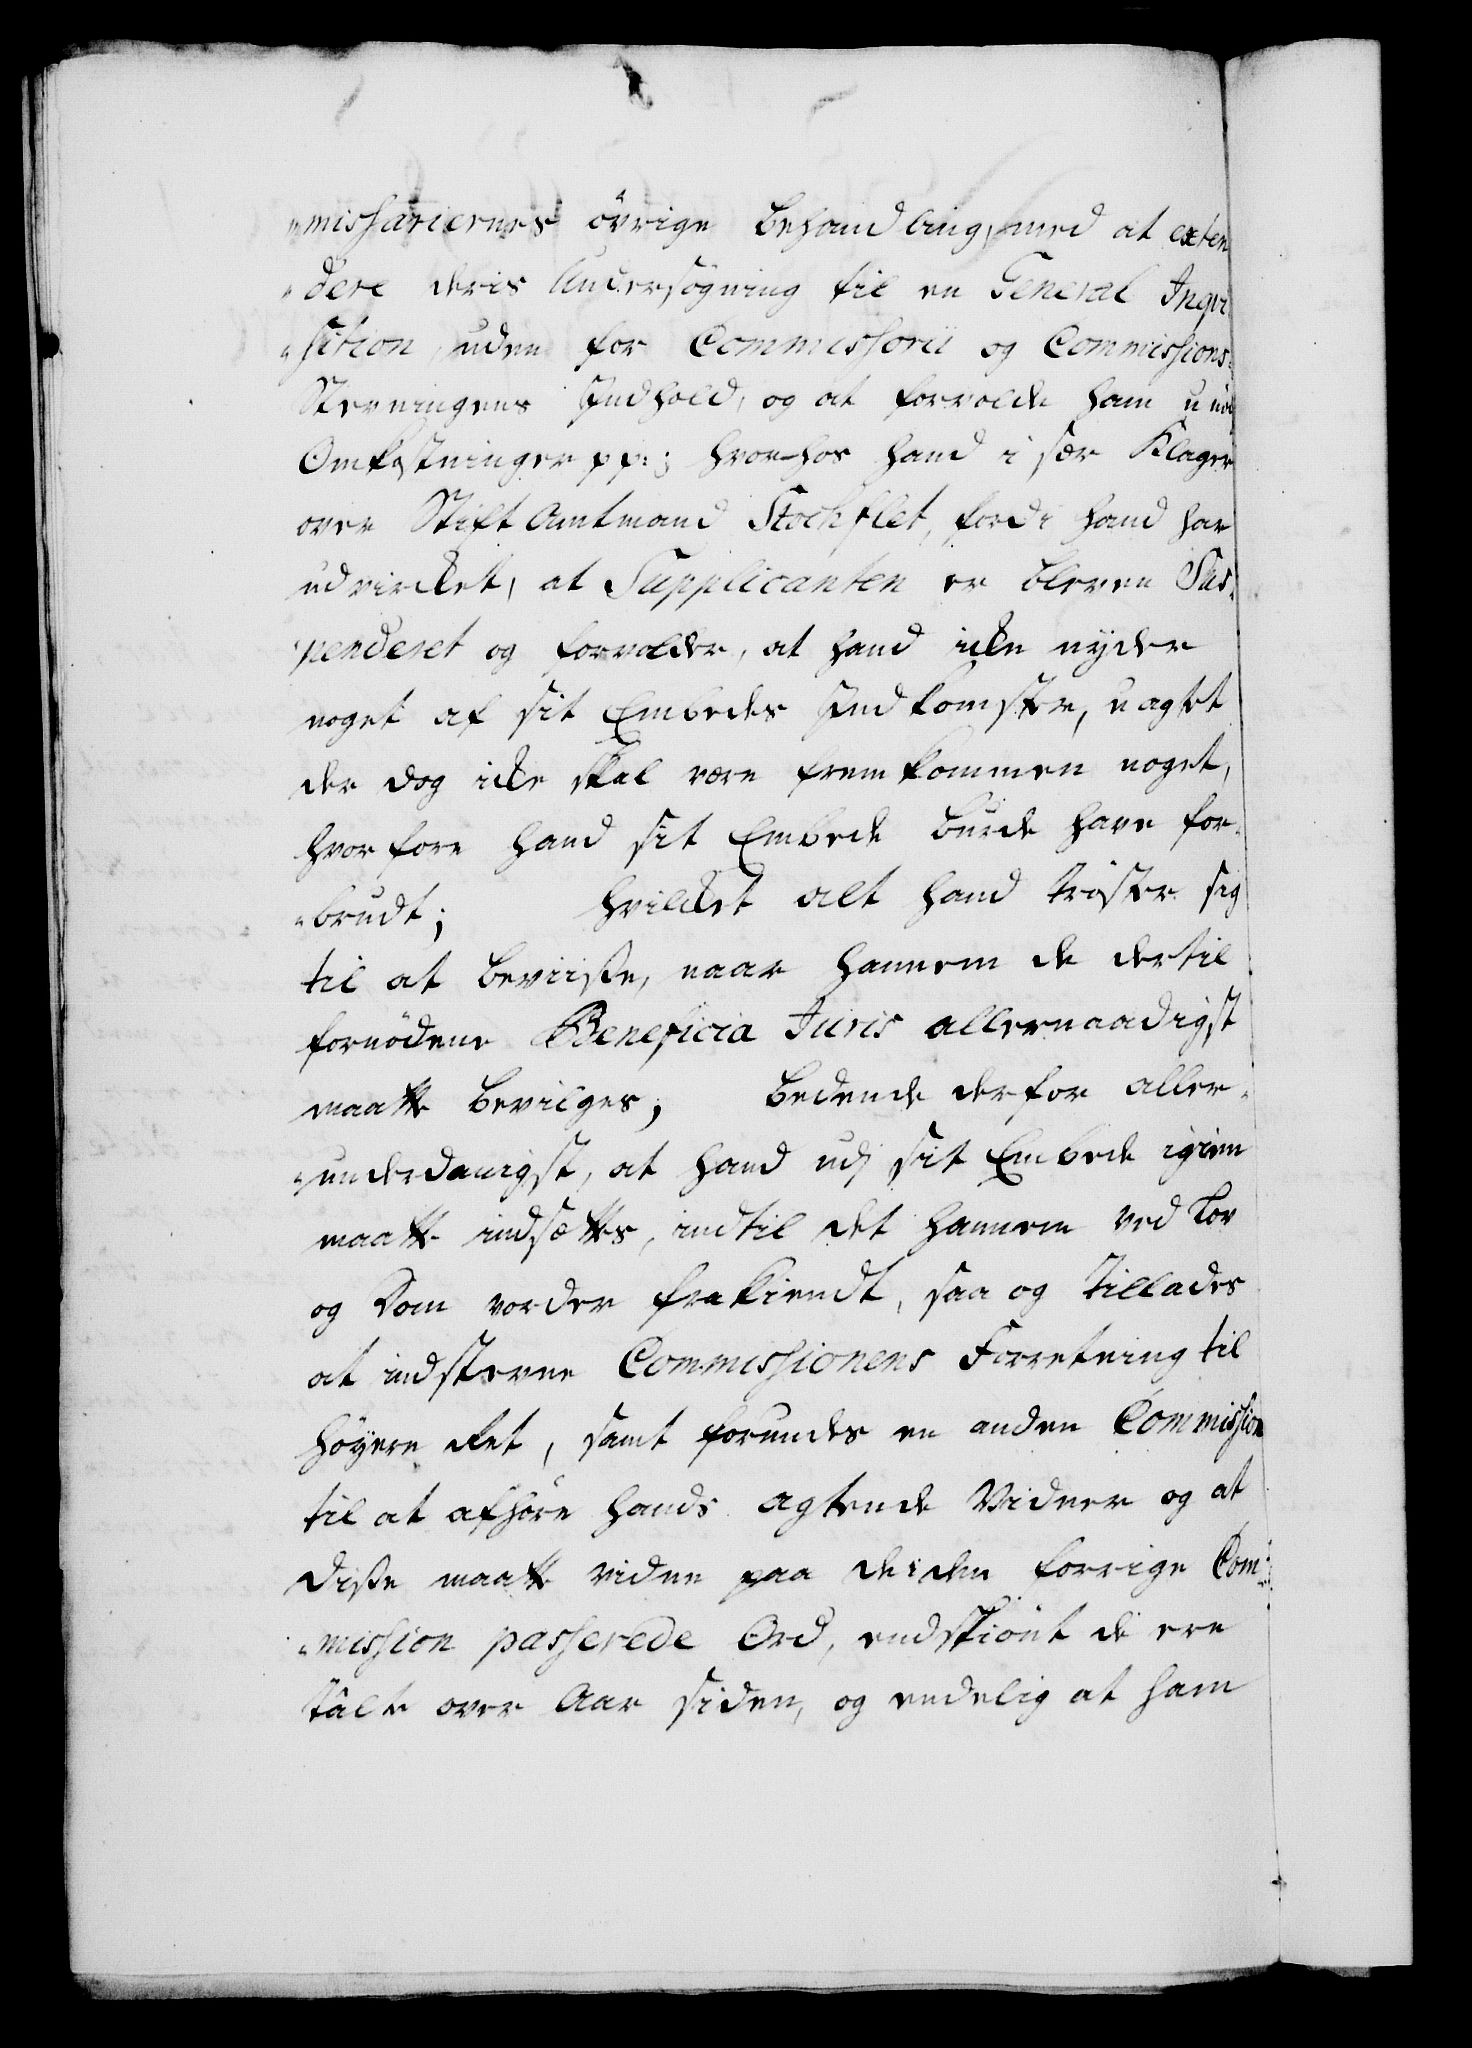 "missariernes övrige Behandling, med at exten
"dere deris Undersøgning til en General Inqvi
"sition, uden for Commissorii og Commissions-
Stevningens Indhold, og at forvolde ham unød
Omkostninger pp:; hvorhos hand i sær Klager
over Stift Amtmand Stockflet, fordi hand har
udvircket, at Supplicanten er bleven Sus-
penderet og forvolder, at hand icke nyder
noget af sit Embedes Indkomster, uagtet
der dog icke skal være fremkommen noget,
hvorfore hand sit Embede burde have for-
"brudt; hvilcket alt hand trøster sig
til at beviisse, naar hannem de dertil
fornødene Beneficia Juris allernaadigst
maatte bevilges; bedende derfor aller-
"underdanigst, at hand udj sit Embede igien
maatte indsættes, indtil det hannem ved Lov
og Dom vorder frakiendt, saa og tillades
at indstevne Commissionens Forretning til
høyere Ret, samt forundes en anden Commission
til at afhøre hands agtende Vidner og at
disse maatte vidne paa de i den forrige Com-
"mission passerede Ord, endskiønt de ere
talte over Aar siden, og endelig at ham